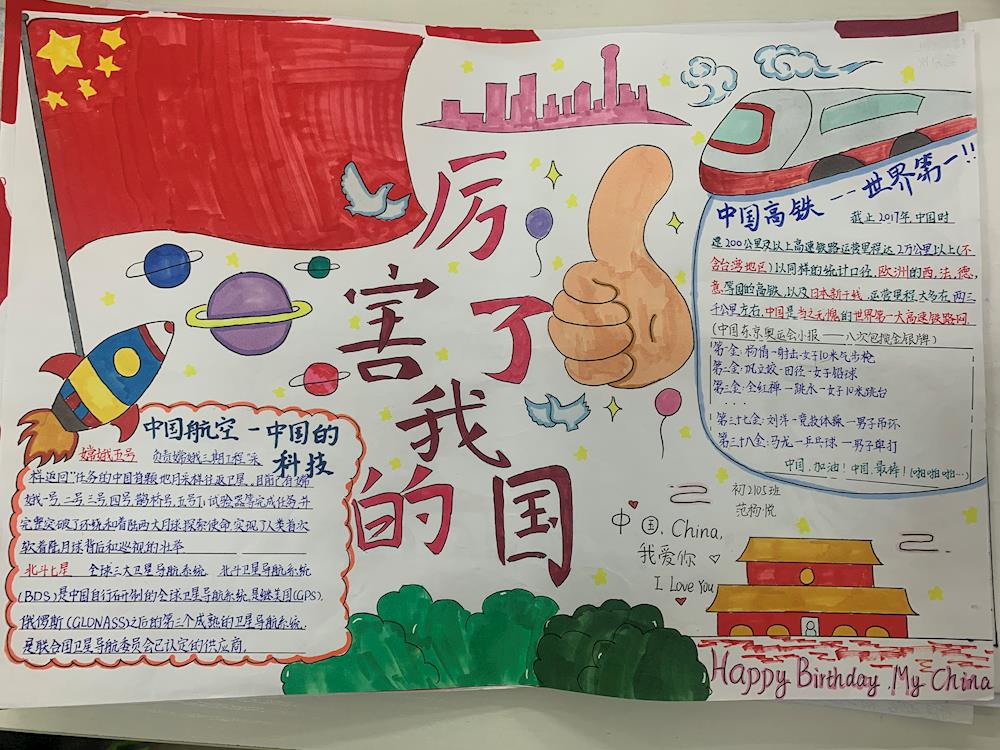 厉害了
我的国
中国高铁---世界第一!!
截止2017年,中国时
速200公里及以上高速铁路运营里程达2万公里以上(不
含台湾地区)以同样的统计口径,欧洲的西、法、德、
意等国的高铁,以及日本新干线,运营里程大多在两三
千公里左右.中国是当之无愧的世界第一大高速铁路网.
(中国东京奥运会小报——八次包揽金银牌)
第一金:杨倩-射击-女子10米气步枪
第二金:巩立姣-田径-女子铅球
第三金:全红禅-跳水-女子10米跳台
· · · ·
第三十七金:刘洋-竞技体操-男子吊环
第三十八金:马龙-乒乓球-男子单打
中国,加油!中国,最棒!(啪啪啪…)
初2105班
范杨悦
中国,China,
我爱你
I Love You
中国航空-中国的
科技
嫦娥五号 负责嫦娥三期工程"采
样返回"任务的中国首颗地月采样往返卫星,目前已有嫦
娥一号,二号三号四号,鹊桥号,五号T1试验器等完成任务,并
完整突破了环绕和着陆两大月球探索使命,实现了人类首次
软着陆月球背后和巡视的壮举
北斗七星 全球三大卫星导航系统. 北斗卫星导航系统
(BDS)是中国自行研制的全球卫星导航系统,是继美国(GPS),
俄俘斯(GLONASS)之后的第三个成熟的卫星导航系统.
是联合国卫星导航委员会已认定的供应商.
Happy Birthday ,My China